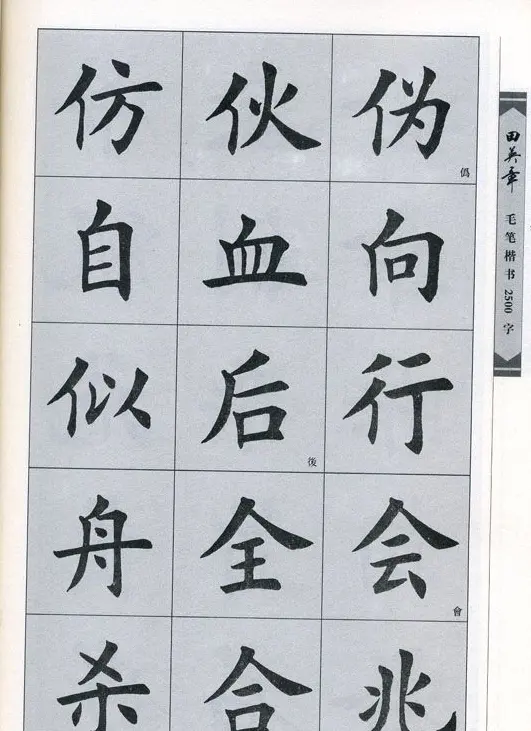 仿 伙 伪 僞
自 血 向
似 后 後 行
舟 全 会 會
杀 合 兆
田英章 毛笔楷书2500字